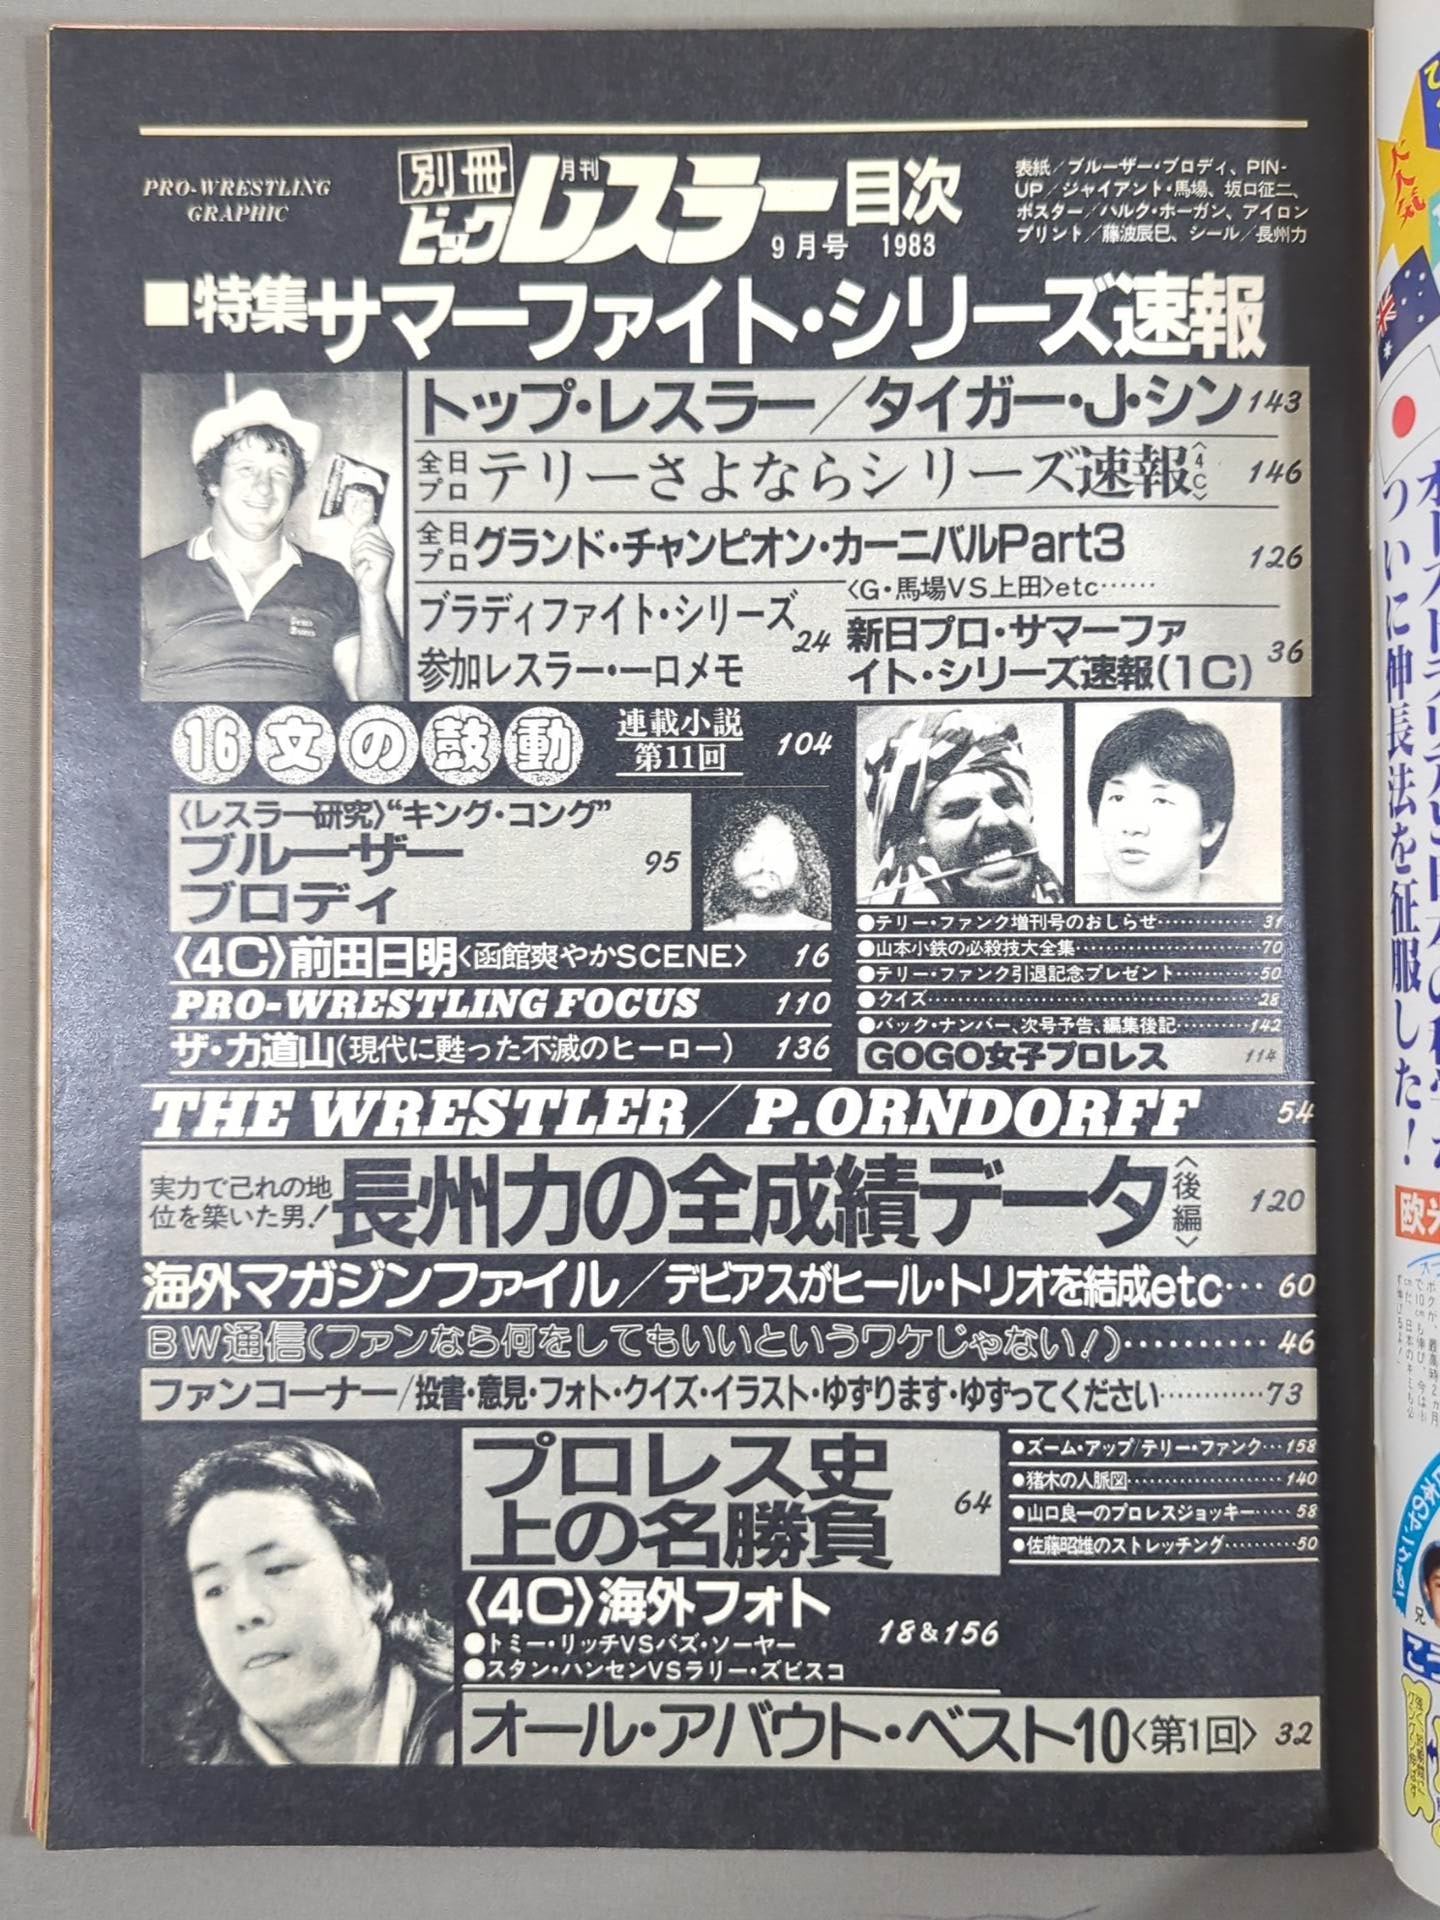 PRO-WRESTLING
GRAPHIC
別冊
月刊
ビッグレスラー目次
9月号 1983
表紙/ブルーザー・ブロディ、PIN-
UP/ジャイアント・馬場、坂口征二、
ポスター/ハルク・ホーガン、アイロン
プリント/藤波辰巳、シール/長州力
■特集サマーファイト・シリーズ速報
トップ・レスラー/タイガー・J・シン 143
全日プロ テリーさよならシリーズ速報〈4C〉 146
全日プロ グランド・チャンピオン・カーニバルPart3
〈G・馬場VS上田〉etc…… 126
ブラディファイト・シリーズ
参加レスラー・一口メモ 24
新日プロ・サマーファ
イト・シリーズ速報(1C) 36
16文の鼓動 連載小説 第11回 104
〈レスラー研究〉“キング・コング”
ブルーザー
ブロディ 95
〈4C〉前田日明〈函館爽やかSCENE〉 16
PRO-WRESTLING FOCUS 110
ザ・力道山(現代に甦った不滅のヒーロー) 136
●テリー・ファンク増刊号のおしらせ…………31
●山本小鉄の必殺技大全集…………70
●テリー・ファンク引退記念プレゼント…………50
●クイズ…………28
●バック・ナンバー、次号予告、編集後記…………142
GOGO女子プロレス 114
THE WRESTLER/P.ORNDORFF 54
実力で己れの地
位を築いた男!
長州力の全成績データ〈後編〉 120
海外マガジンファイル/デビアスがヒール・トリオを結成etc… 60
BW通信(ファンなら何をしてもいいというワケじゃない!)………… 46
ファンコーナー/投書・意見・フォト・クイズ・イラスト・ゆずります・ゆずってください…………73
プロレス史
上の名勝負 64
●ズーム・アップ/テリー・ファンク…158
●猪木の人脈図…………140
●山口良一のプロレスジョッキー……58
●佐藤昭雄のストレッチング…………50
〈4C〉海外フォト 18&156
●トミー・リッチVSバズ・ソーヤー
●スタン・ハンセンVSラリー・ズビスコ
オール・アバウト・ベスト10〈第1回〉 32
ついに伸長法を征服した!